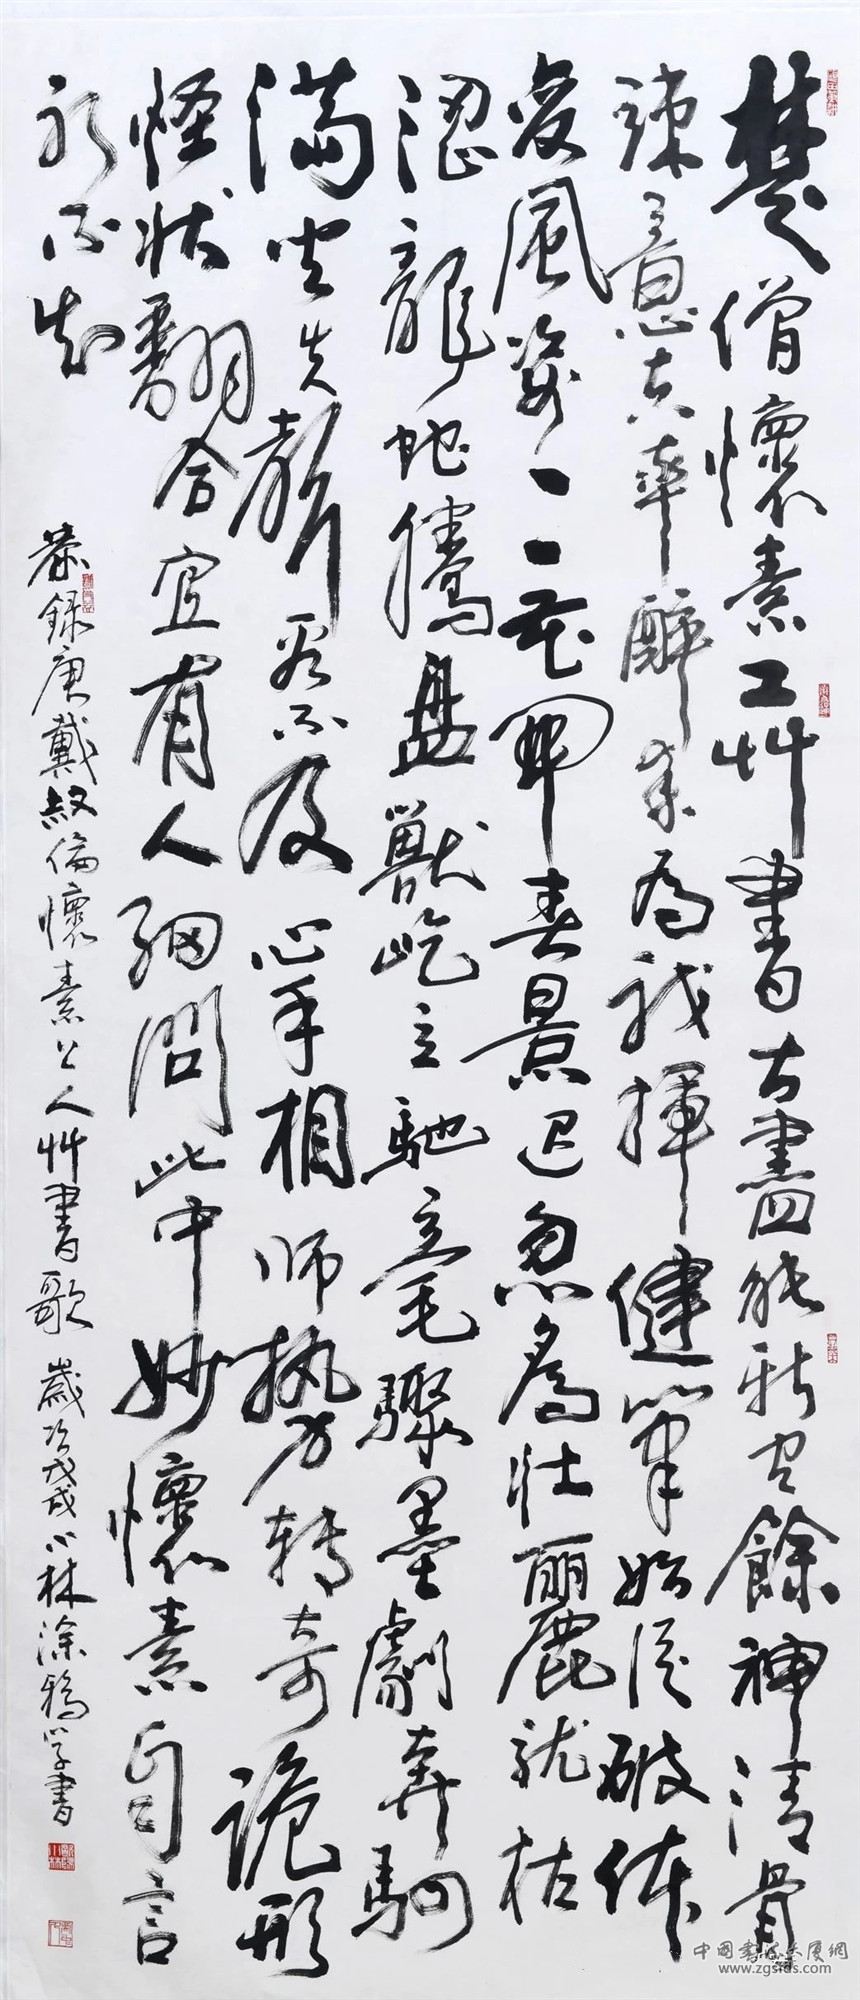 楚僧懷素工艸書古盡能新有餘神清骨
竦意真率醉来為我揮健筆始從破体
變風姿一一花開春景遲忽為壯麗就枯
澀龍蛇騰盤獸屹立馳毫驟墨劇奔駟
滿坐失聲看不及心手相師勢轉奇詭形
怪狀翻合宜有人細問此中妙懷素自言
初不知
恭録唐戴叔倫懷素上人艸書歌 歲次戊戌小林涂鴉學書
中國書法大厦網
www.zgsfds.com